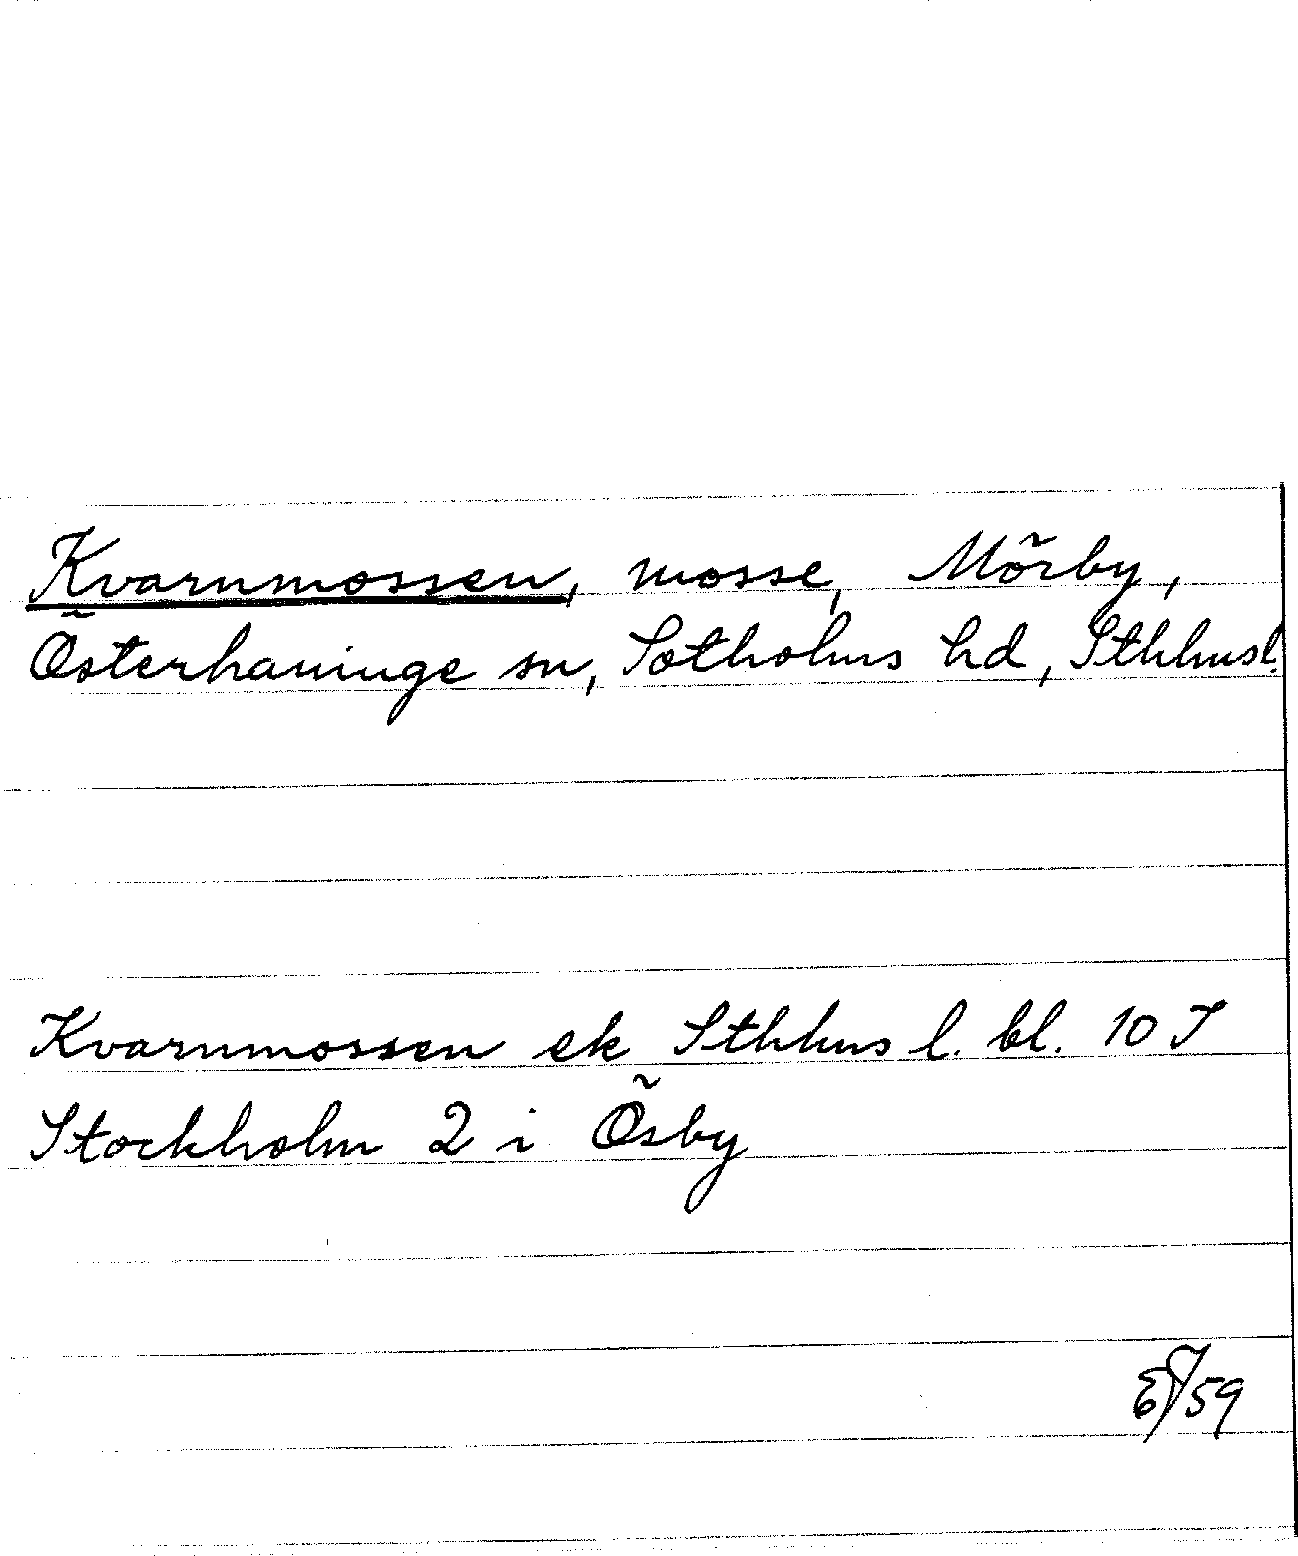 Kvarnmossen, mosse, Mörby,
Österhaninge sn, Sotholms hd, Sthlms l.
Kvarnmossen ek Sthlms l. bl. 10 I
Stockholm 2 i Ösby
/59